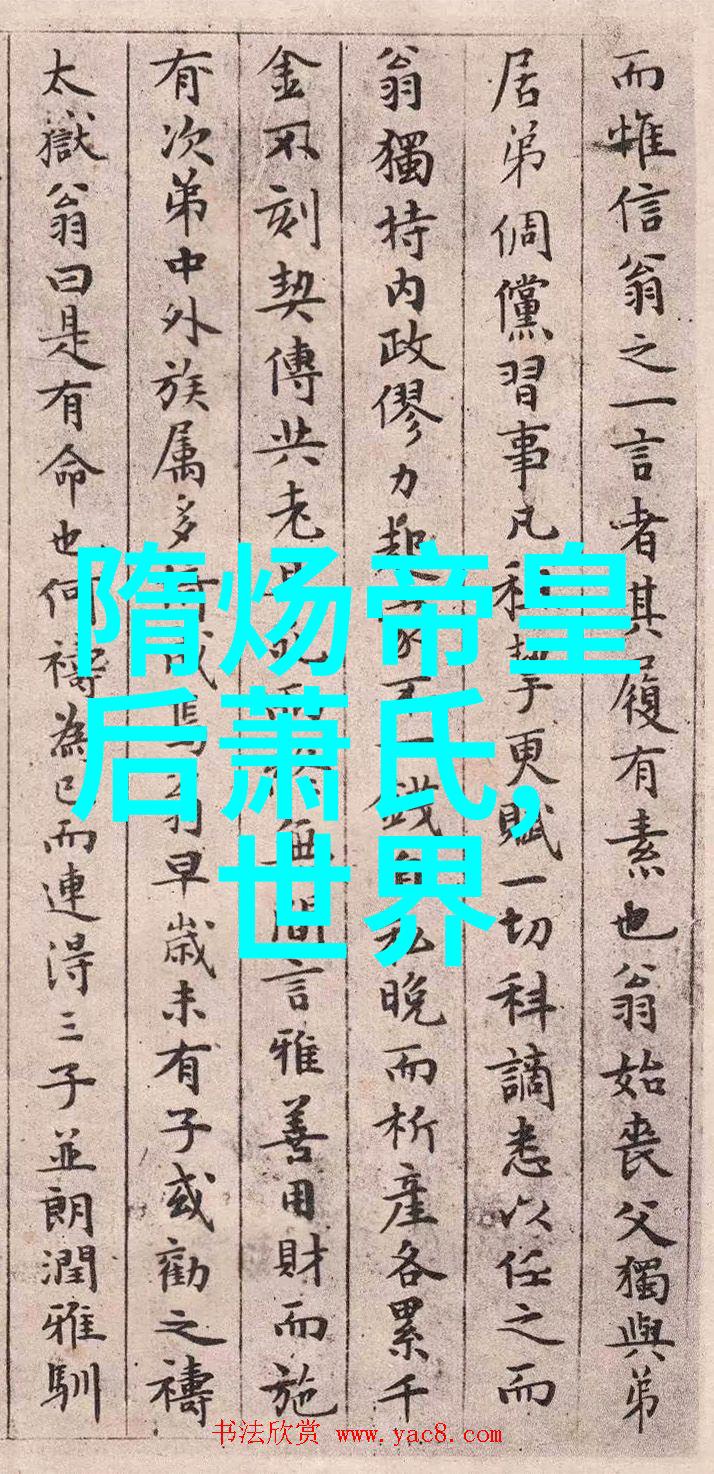 而惟信翁之一言者其履有素也翁始喪父獨與弟
居弟倜儻習事凡更賦一切科謫悉以任之而
翁獨持内政僇力起家不一錢自私晚而析產各累千
金不刻契傳共老且而無間言雅善用財而施
有次弟中外族属多焉翁早歲未有子或勸之禱
太獄翁曰是有命也何禱為已而連得三子並朗潤雅馴
隋炀帝皇
后萧氏,
世界
书法欣赏 www.yac8.com